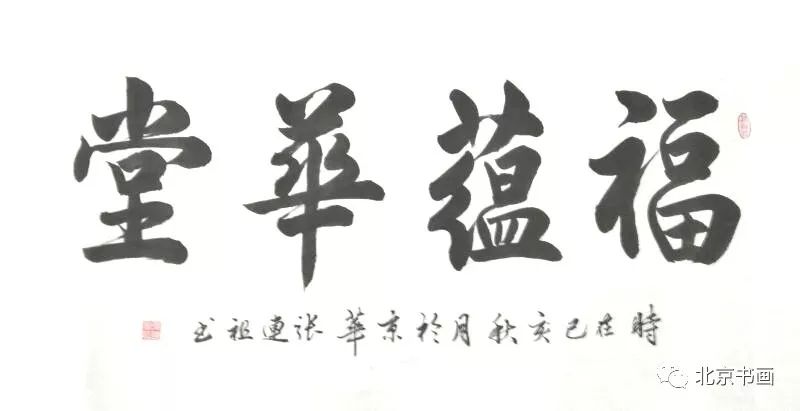 福蕴華堂
時在己亥秋月於京華张連祖书
北京书画